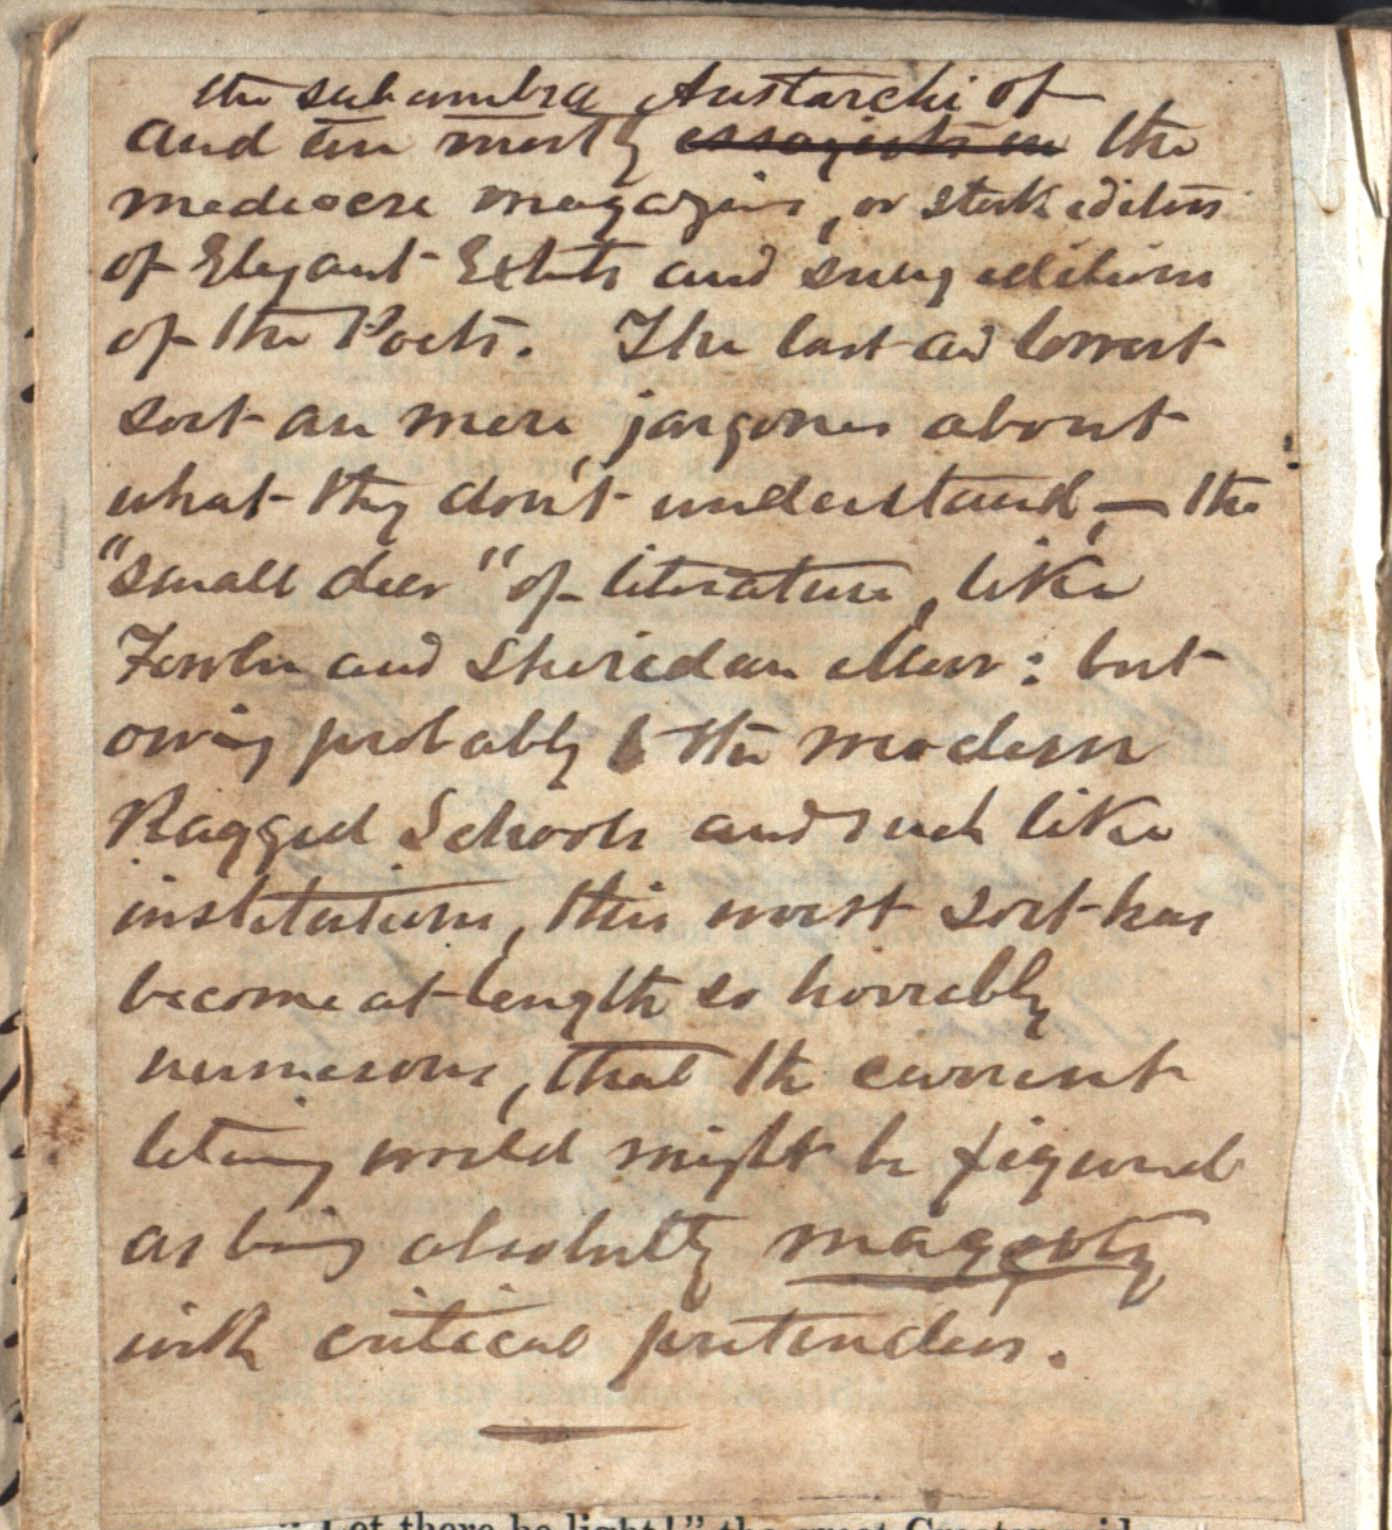 the subumbra Aristarchi of
and are mostly essayists in the
mediocre magazines, or stock editors
of Elegant Extracts and snug editions
of the Poets. The last and lowest
sort are mere jargoners about
what they don't understand, — the
"small deer" of literature, like
Fowler and Sheridan Muir: but
owing probably to the modern
Ragged Schools and such like
institutions, this worst sort has
become at length so horribly
numerous, that the current
literary world might be figured
as being absolutely maggoty
with critical pretenders.
"Let there be light!" the great Creator said